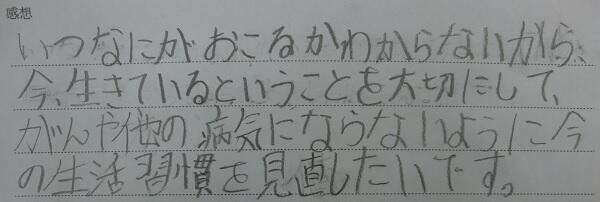 感想
いつなにがおこるかわからないから、
今、生きているということを大切にして、
がんや他の病気にならないように今
の生活習慣を見直したいです。